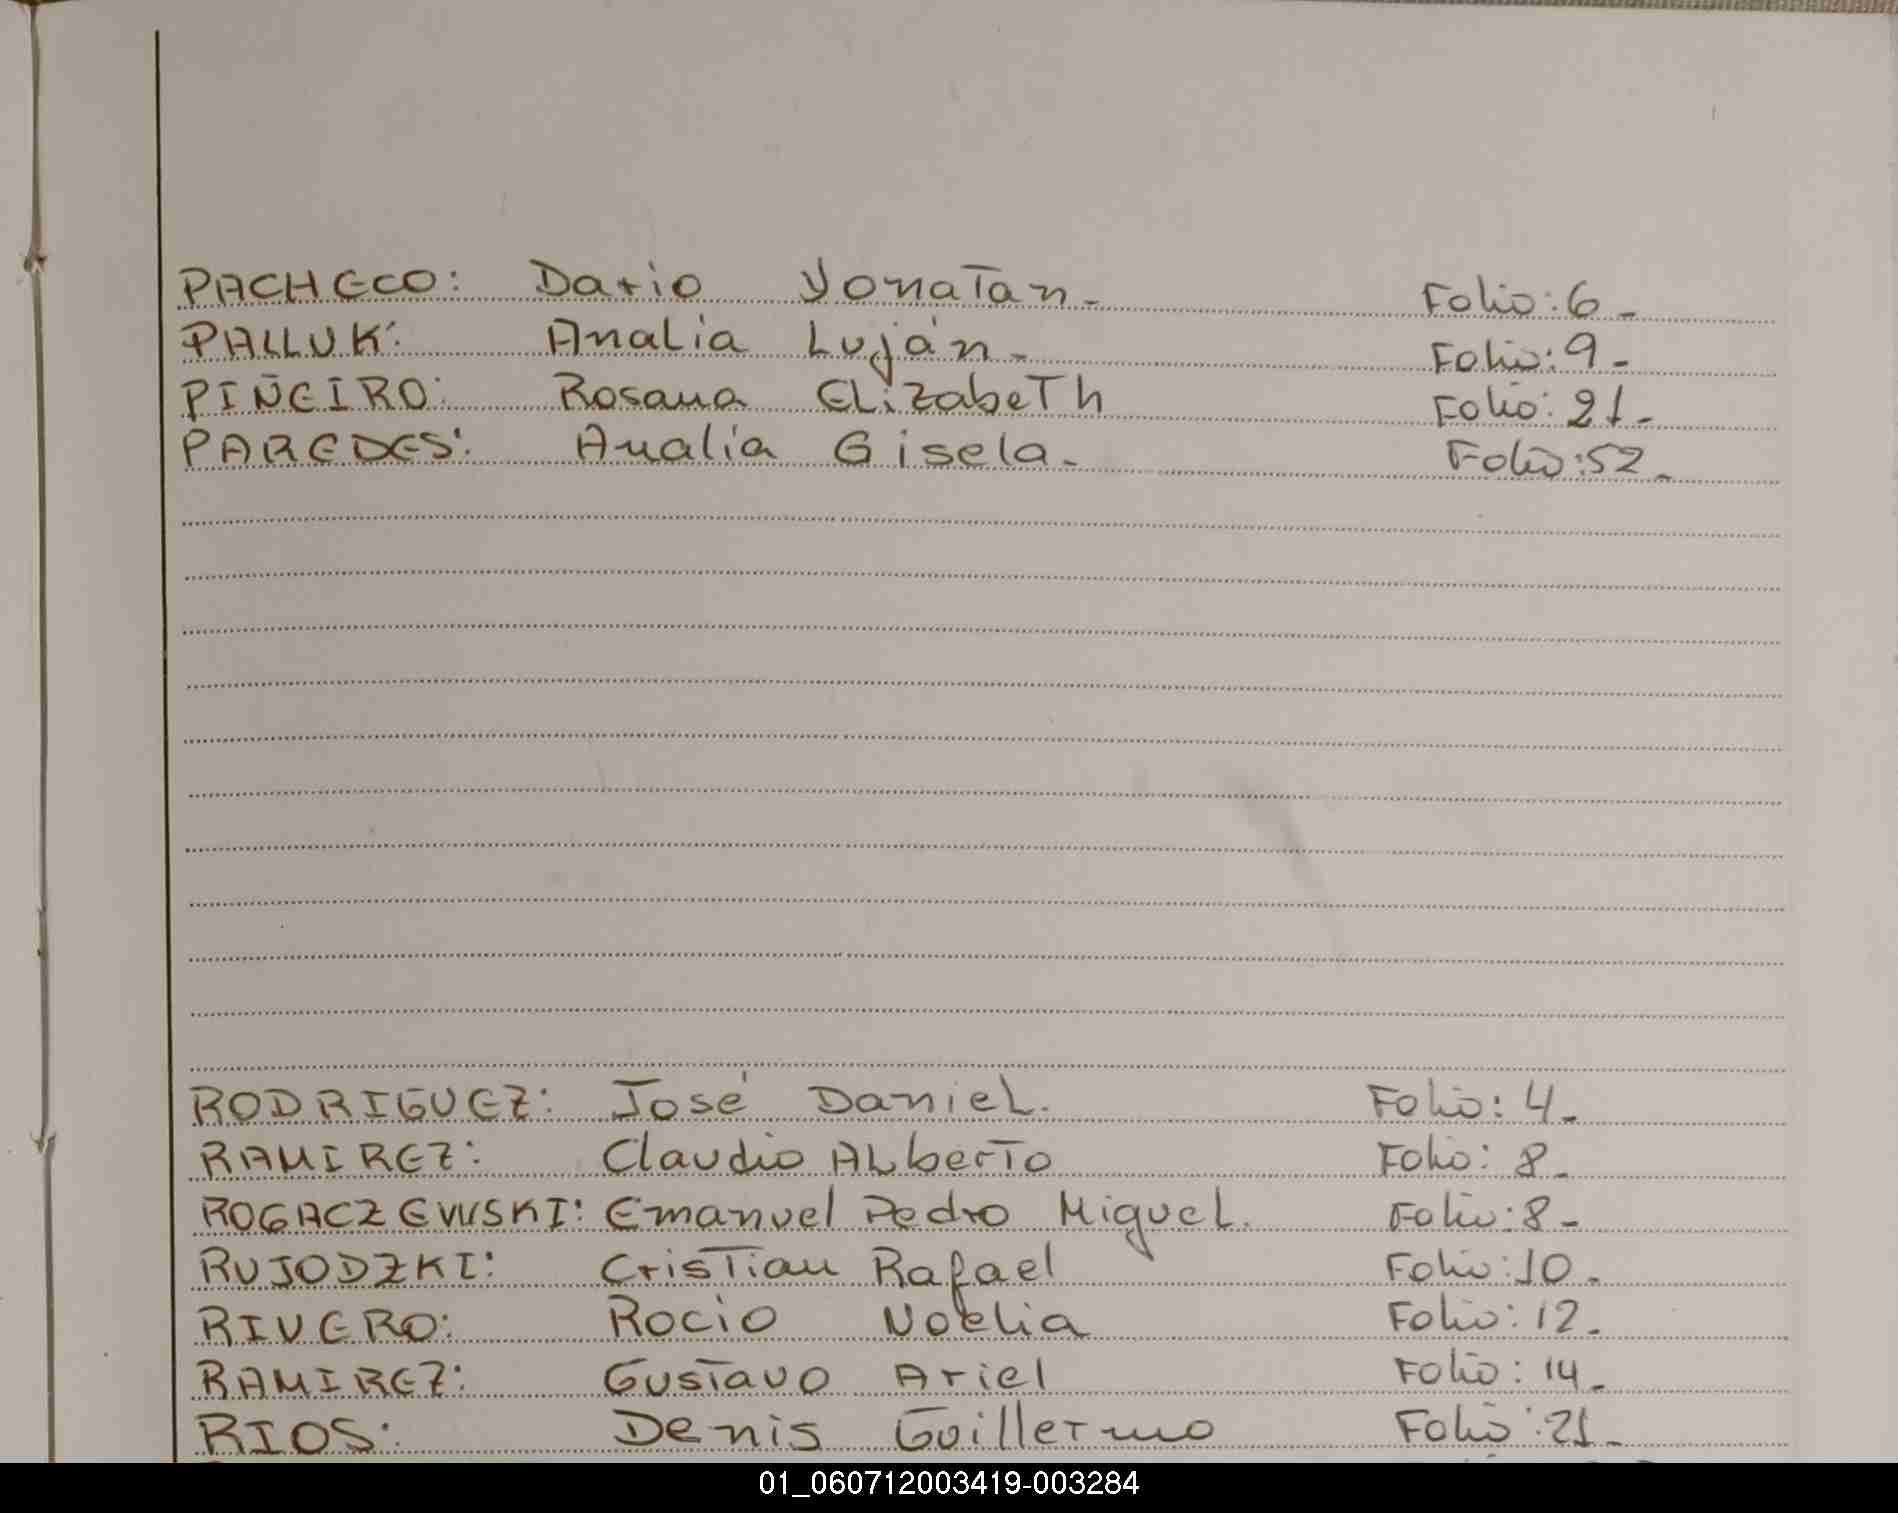 PACHECO: Dario Yonatan- Folio: 6-
PALLUK: Analia Luján- Folio: 9-
PIÑEIRO: Rosana Elizabeth Folio: 21-
PAREDES: Analía Gisela- Folio: 52-
RODRIGUEZ: José Daniel. Folio: 4-
RAMIREZ: Claudio Alberto Folio: 8-
ROGACZEWSKI: Emanuel Pedro Miguel. Folio: 8-
RUJODZKI: Cristian Rafael Folio: 10-
RIVERO: Rocio Noelia Folio: 12-
RAMIREZ: Gustavo Ariel Folio: 14-
RIOS: Denis Guillermo Folio: 21-
01_060712003419-003284